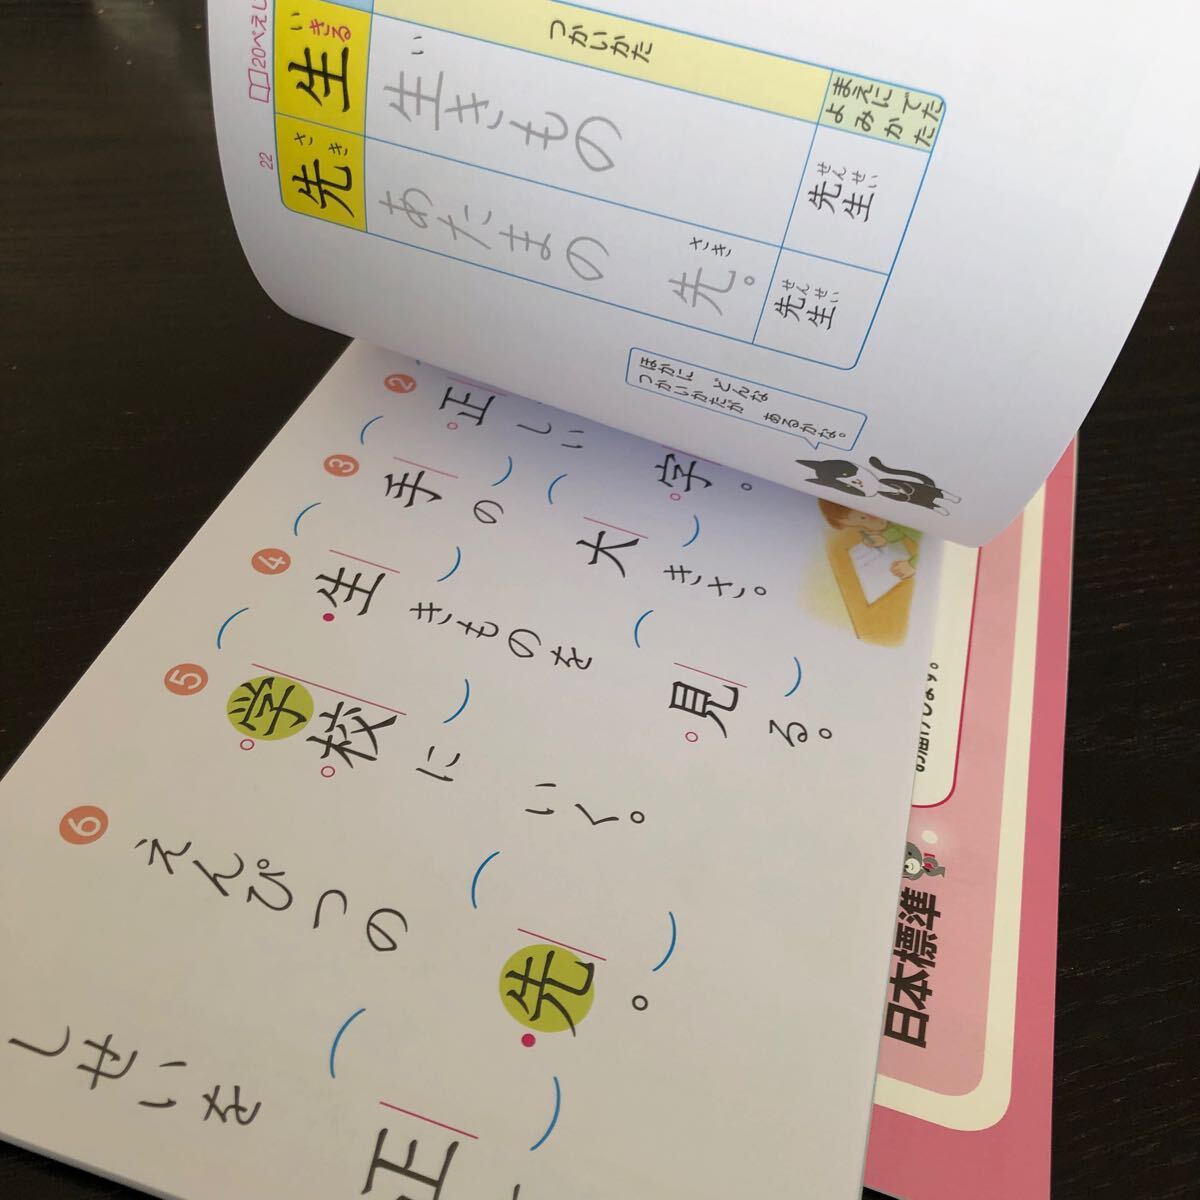 20ぺえじ
いきる
生
つかいかた
い
生きもの
まえに でた
よみかた
せんせい
先生
22
さき
先
あたまの
さき
先。
せんせい
先生
ほかに どんな
つかいかたが あるかな。
2
正しい
字。
3
手の
大きさ。
4
生きものを
見る。
5
学校に
いく。
6
えんぴつの
先。
しせいを
正
お届けします。
日本標準